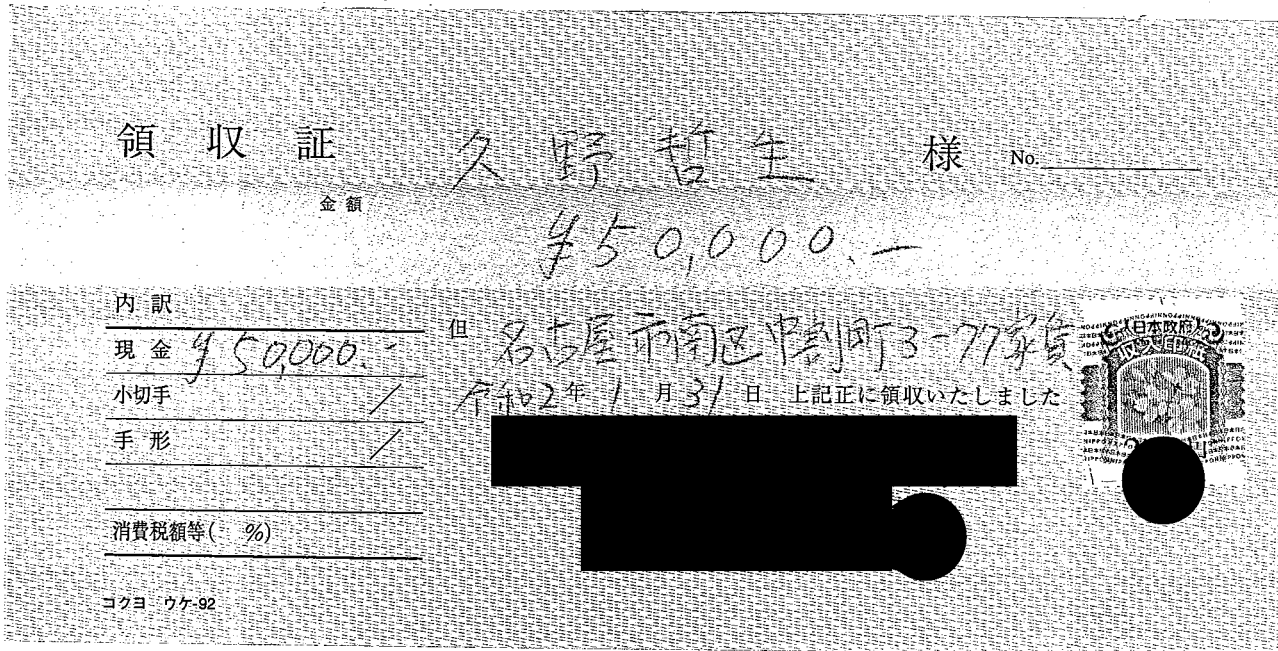 領収証 久野哲生 様 No.
金額
¥50,000.-
内訳
現金 ¥50,000.-
小切手 /
手形 /
消費税額等( %)
但 名古屋市南区中割町3-77家賃
令和2年1月31日 上記正に領収いたしました
日本政府
収入印紙
コクヨ ウケ-92